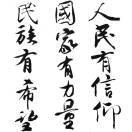 人民有信仰
國家有力量
民族有希望